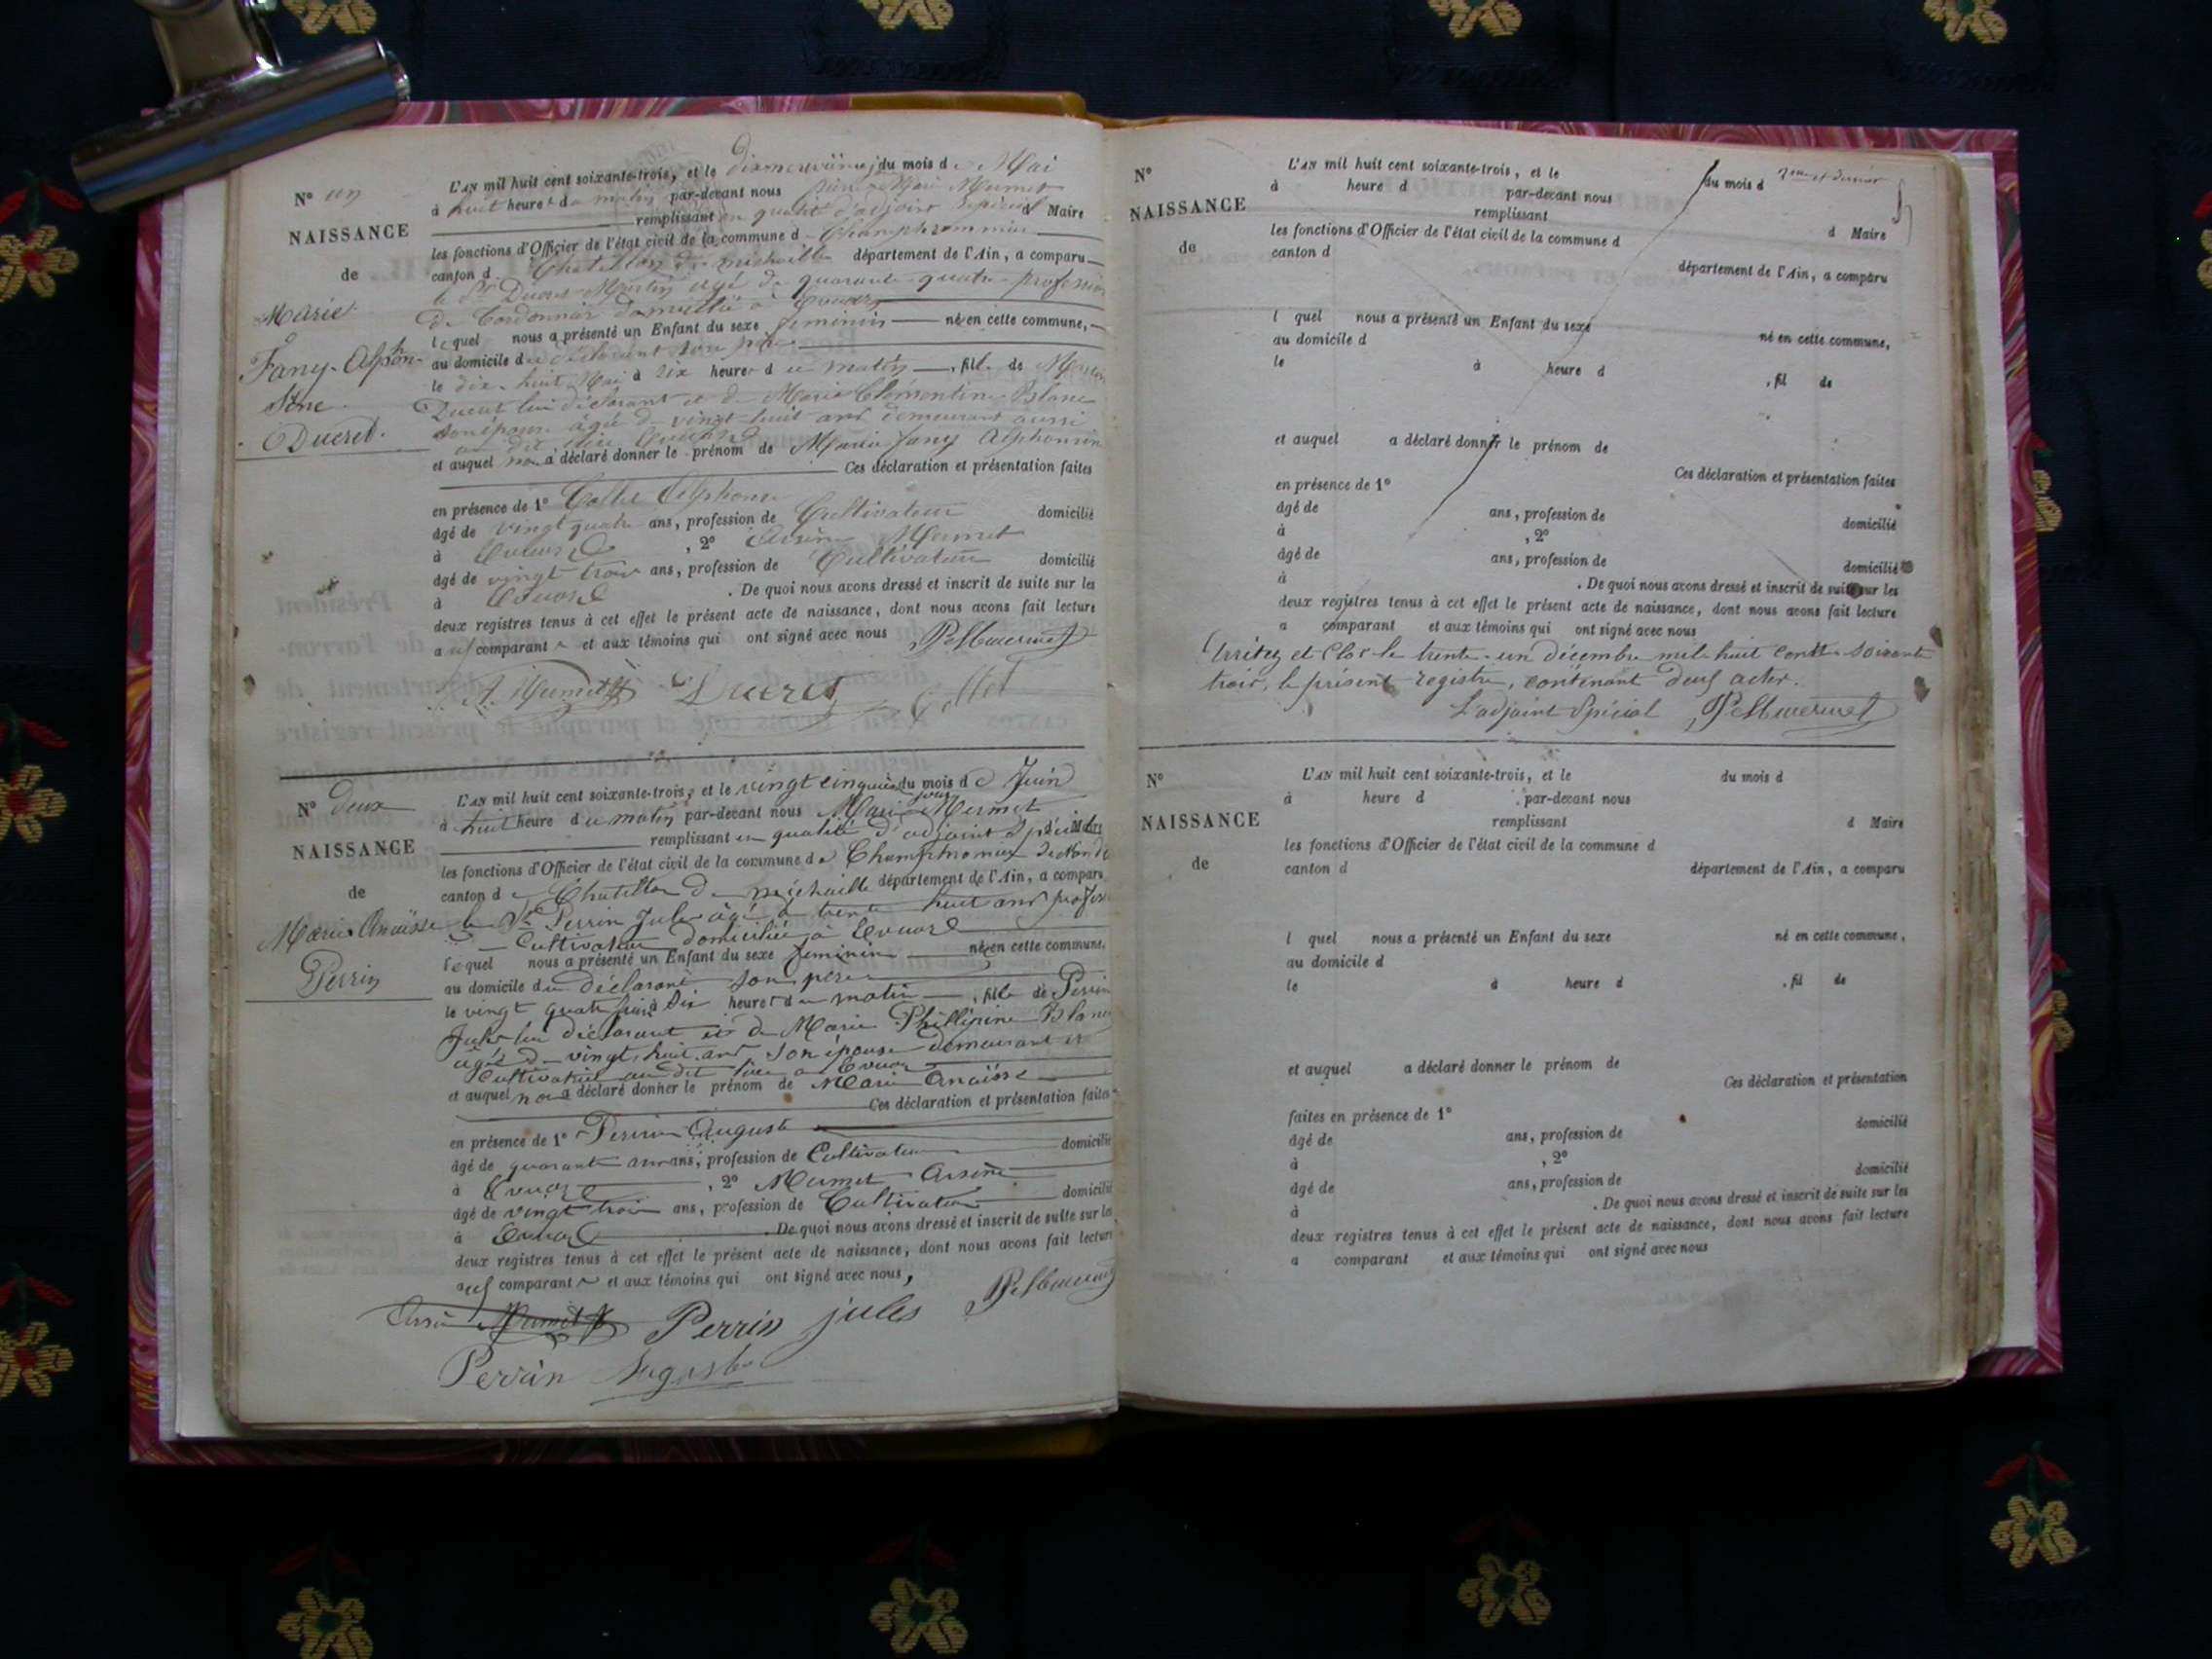 N° un
NAISSANCE
de
Marie
Fany Alphon-
sine
Ducret.
L'AN mil huit cent soixante-trois, et le dixneuvième jour du mois de Mai
à huit heures du matin par-devant nous Pierre Marie Mermet
remplissant en qualité d'adjoint spécial d Maire
les fonctions d'Officier de l'état civil de la commune de Champfromier
canton de Chatillon de michaille département de l'Ain, a comparu
le Sr Ducret agé de quarante quatre profession
de Cordonnier domicilié à Evuard
lequel nous a présenté un Enfant du sexe feminin né en cette commune,
au domicile du déclarant son père
le dix-huit Mai à six heures du matin, fille de
Ducret lui déclarant et de Marie Clémentine Blanc
son épouse âgée de vingt-huit ans demeurant aussi
au dit lieu Evuard
et auquel nous a déclaré donner le prénom de Marie Fany Alphonsine
Ces déclaration et présentation faites
en présence de 1° Alphonse
âgé de vingt quatre ans, profession de Cultivateur domicilié
à Evuard, 2° Arsène Mermet
âgé de vingt trois ans, profession de Cultivateur domicilié
à Evuard. De quoi nous avons dressé et inscrit de suite sur les
deux registres tenus à cet effet le présent acte de naissance, dont nous avons fait lecture
aux comparants et aux témoins qui ont signé avec nous PMMermet
A Mermet Ducret
N° deux
NAISSANCE
de
Marie Anaïsse
Perrin
L'AN mil huit cent soixante-trois, et le vingt cinquième jour du mois de Juin
à huit heure du matin par-devant nous Marie Mermet
remplissant en qualité d'adjoint spécial
les fonctions d'Officier de l'état civil de la commune de Champfromier
canton de Chatillon de michaille département de l'Ain, a comparu
le Sr Perrin Jules âgé de trente huit ans
Cultivateur domicilié à Evuard
lequel nous a présenté un Enfant du sexe feminin né en cette commune,
au domicile du déclarant son père
le vingt quatre juin à six heures du matin, fille de Perrin
Jules lui déclarant et de Marie Phillipine Blanc
agée de vingt huit ans son épouse demeurant et
au dit lieu Evuard
et auquel nous a déclaré donner le prénom de Marie Anaïsse
Ces déclaration et présentation faites
en présence de 1° Perrin Auguste
âgé de quarante ans, profession de Cultivateur domicilié
à Evuard, 2° Mermet Arsène
âgé de vingt trois ans, profession de Cultivateur domicilié
à Evuard. De quoi nous avons dressé et inscrit de suite sur les
deux registres tenus à cet effet le présent acte de naissance, dont nous avons fait lecture
aux comparants et aux témoins qui ont signé avec nous,
Arsène Mermet Perrin jules PMMermet
Perrin Aguste
N°
NAISSANCE
de
L'AN mil huit cent soixante-trois, et le du mois d
à heure d par-devant nous
remplissant d Maire
les fonctions d'Officier de l'état civil de la commune d
canton d département de l'Ain, a comparu
l quel nous a présenté un Enfant du sexe né en cette commune,
au domicile d
le à heure d , fil de
et auquel a déclaré donner le prénom de
Ces déclaration et présentation faites
en présence de 1°
âgé de ans, profession de domicilié
à , 2°
âgé de ans, profession de domicilié
à . De quoi nous avons dressé et inscrit de suite sur les
deux registres tenus à cet effet le présent acte de naissance, dont nous avons fait lecture
a comparant et aux témoins qui ont signé avec nous
et Clos le trente-un décembre mil huit cent soixante
trois, le présent registre, contenant deux actes.
L'adjoint Spécial PMMermet
N°
NAISSANCE
de
L'AN mil huit cent soixante-trois, et le du mois d
à heure d par-devant nous
remplissant d Maire
les fonctions d'Officier de l'état civil de la commune d
canton d département de l'Ain, a comparu
l quel nous a présenté un Enfant du sexe né en cette commune,
au domicile d
le à heure d , fil de
et auquel a déclaré donner le prénom de
Ces déclaration et présentation
faites en présence de 1°
âgé de ans, profession de domicilié
à , 2°
âgé de ans, profession de domicilié
à . De quoi nous avons dressé et inscrit de suite sur les
deux registres tenus à cet effet le présent acte de naissance, dont nous avons fait lecture
a comparant et aux témoins qui ont signé avec nous